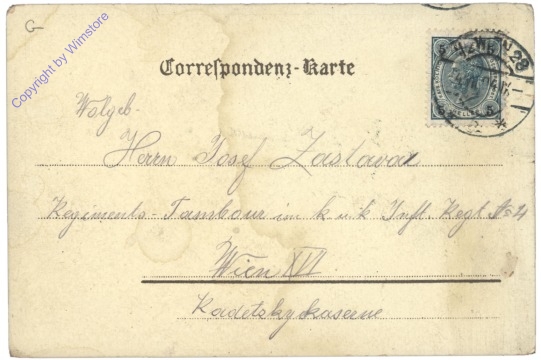 G-
Copyright by Wimstore
WIEN
Correspondenz-Karte
Wolgeb.
Herrn Josef Zastavac
Regiments-Tambour im k u k Inft. Regt. No 4
Wien XVI
Radetskykaserne